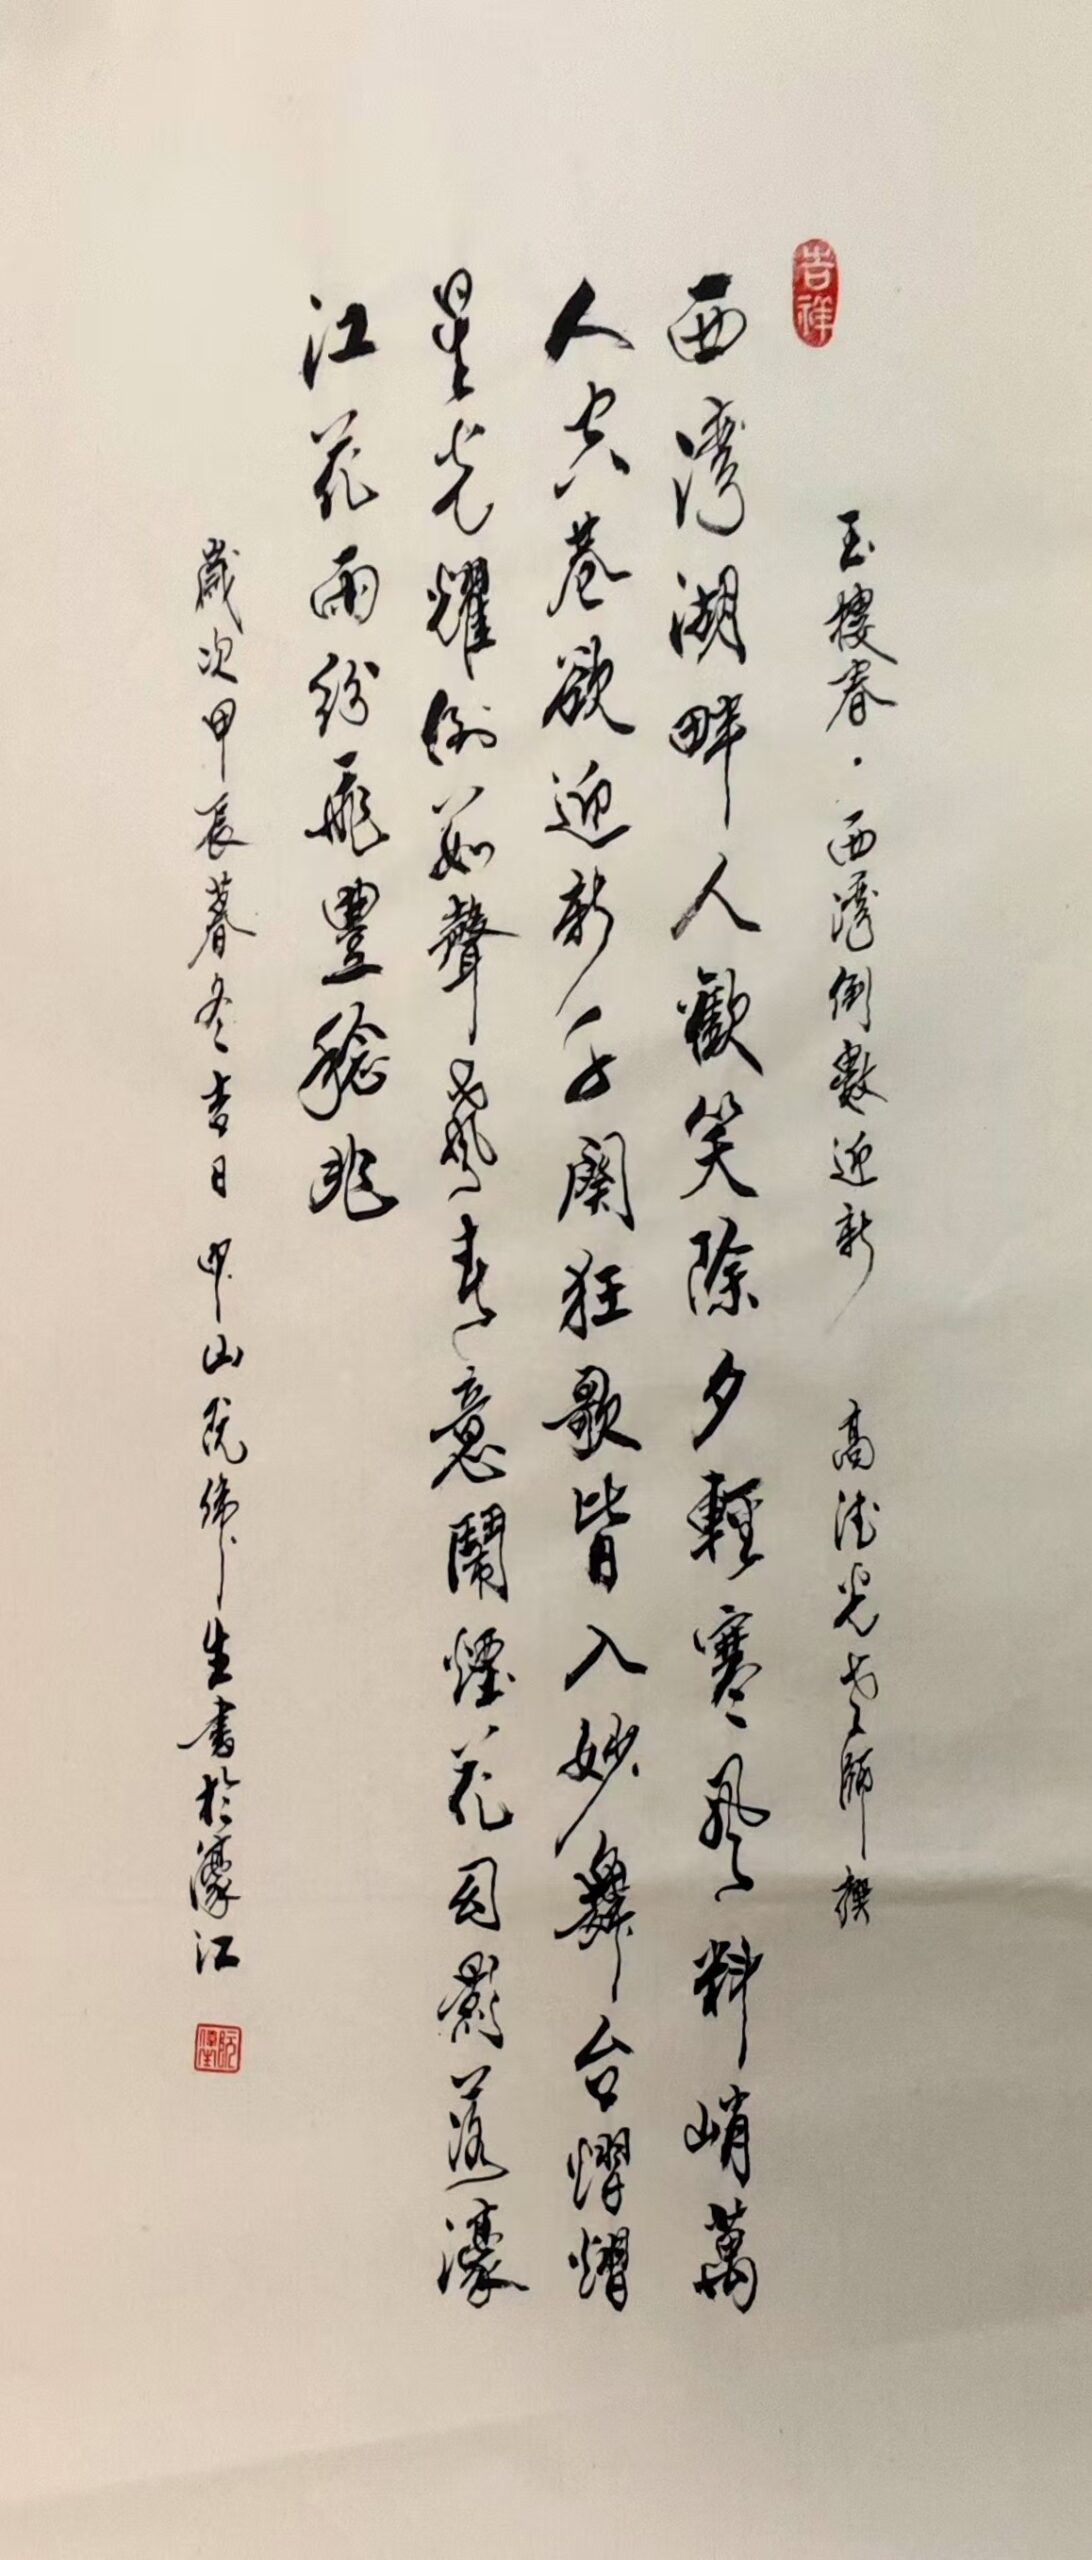 吉祥
玉樓春·西灣倒數迎新 高德光老師撰
西灣湖畔人人歡笑除夕輕寒風料峭萬
人空巷欲迎新千闋狂歌皆入妙舞台熠熠
星光耀倒數聲歡春意鬧煙花幻影落濠
江花雨紛飛豐稔兆
歲次甲辰暮冬吉日中山阮偉生書於濠江